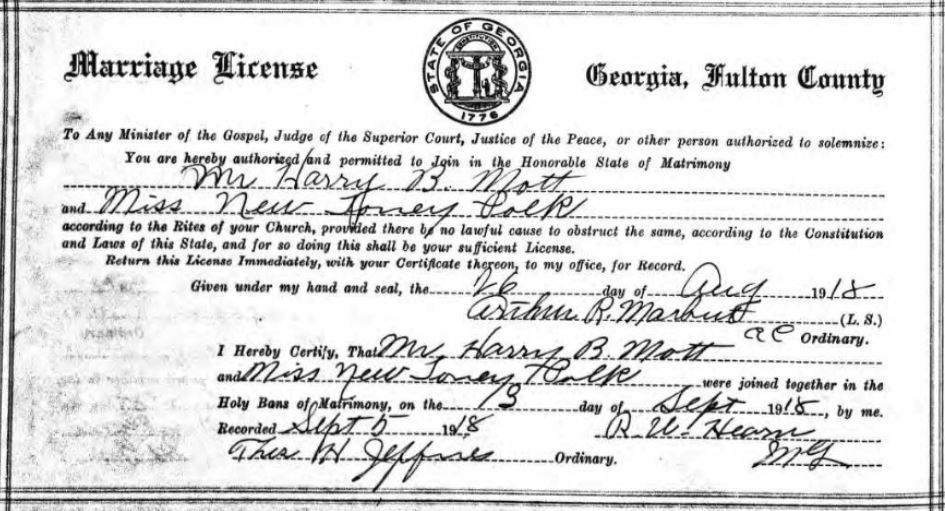 STATE OF GEORGIA
CONSTITUTION
1776
Marriage License
Georgia, Fulton County
To Any Minister of the Gospel, Judge of the Superior Court, Justice of the Peace, or other person authorized to solemnize:
You are hereby authorized and permitted to Join in the Honorable State of Matrimony
Mr Harry B. Mott
and Miss New Toney Polk
according to the Rites of your Church, provided there be no lawful cause to obstruct the same, according to the Constitution
and Laws of this State, and for so doing this shall be your sufficient License.
Return this License Immediately, with your Certificate thereon, to my office, for Record.
Given under my hand and seal, the 26 day of Aug 1918
Arthur R. Marbut (L. S.)
Ordinary.
I Hereby Certify, That Mr Harry B. Mott
and Miss New Toney Polk were joined together in the
Holy Bans of Matrimony, on the day of Sept 1918, by me.
Recorded Sept 5 1918 R. W. Hearn
Thos H Jeffries Ordinary. MG